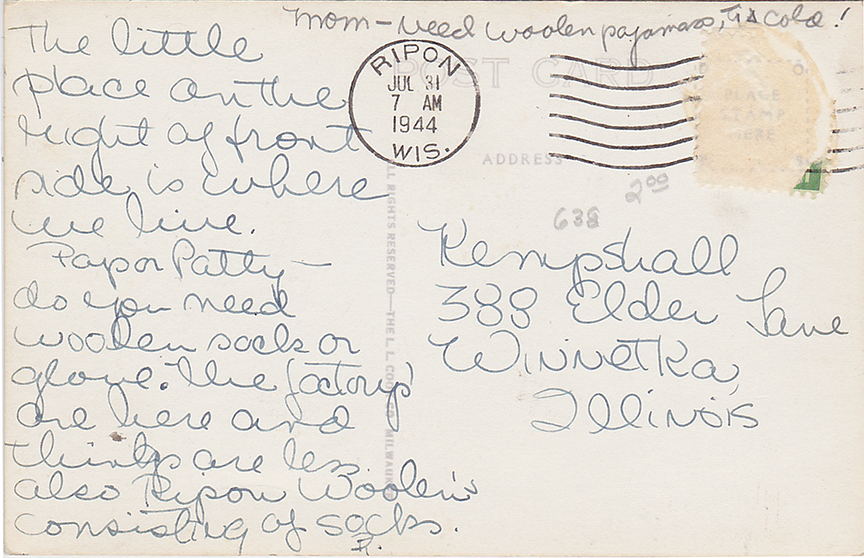 Mom - Need woolen pajamas, Tis cold!
The little
place on the
right of front
side is where
we live.
Pap or Patty -
do you need
woolen socks or
glove. The factorys
are here and
things are less.
also Ripon Woolen's
consisting of socks.
RIPON
JUL 31
7 AM
1944
WIS.
POST CARD
PLACE
STAMP
HERE
ADDRESS
638 2.00
Kempshall
388 Elder Lane
Winnetka,
Illinois
ALL RIGHTS RESERVED—THE L. L. COOK CO. MILWAUKEE